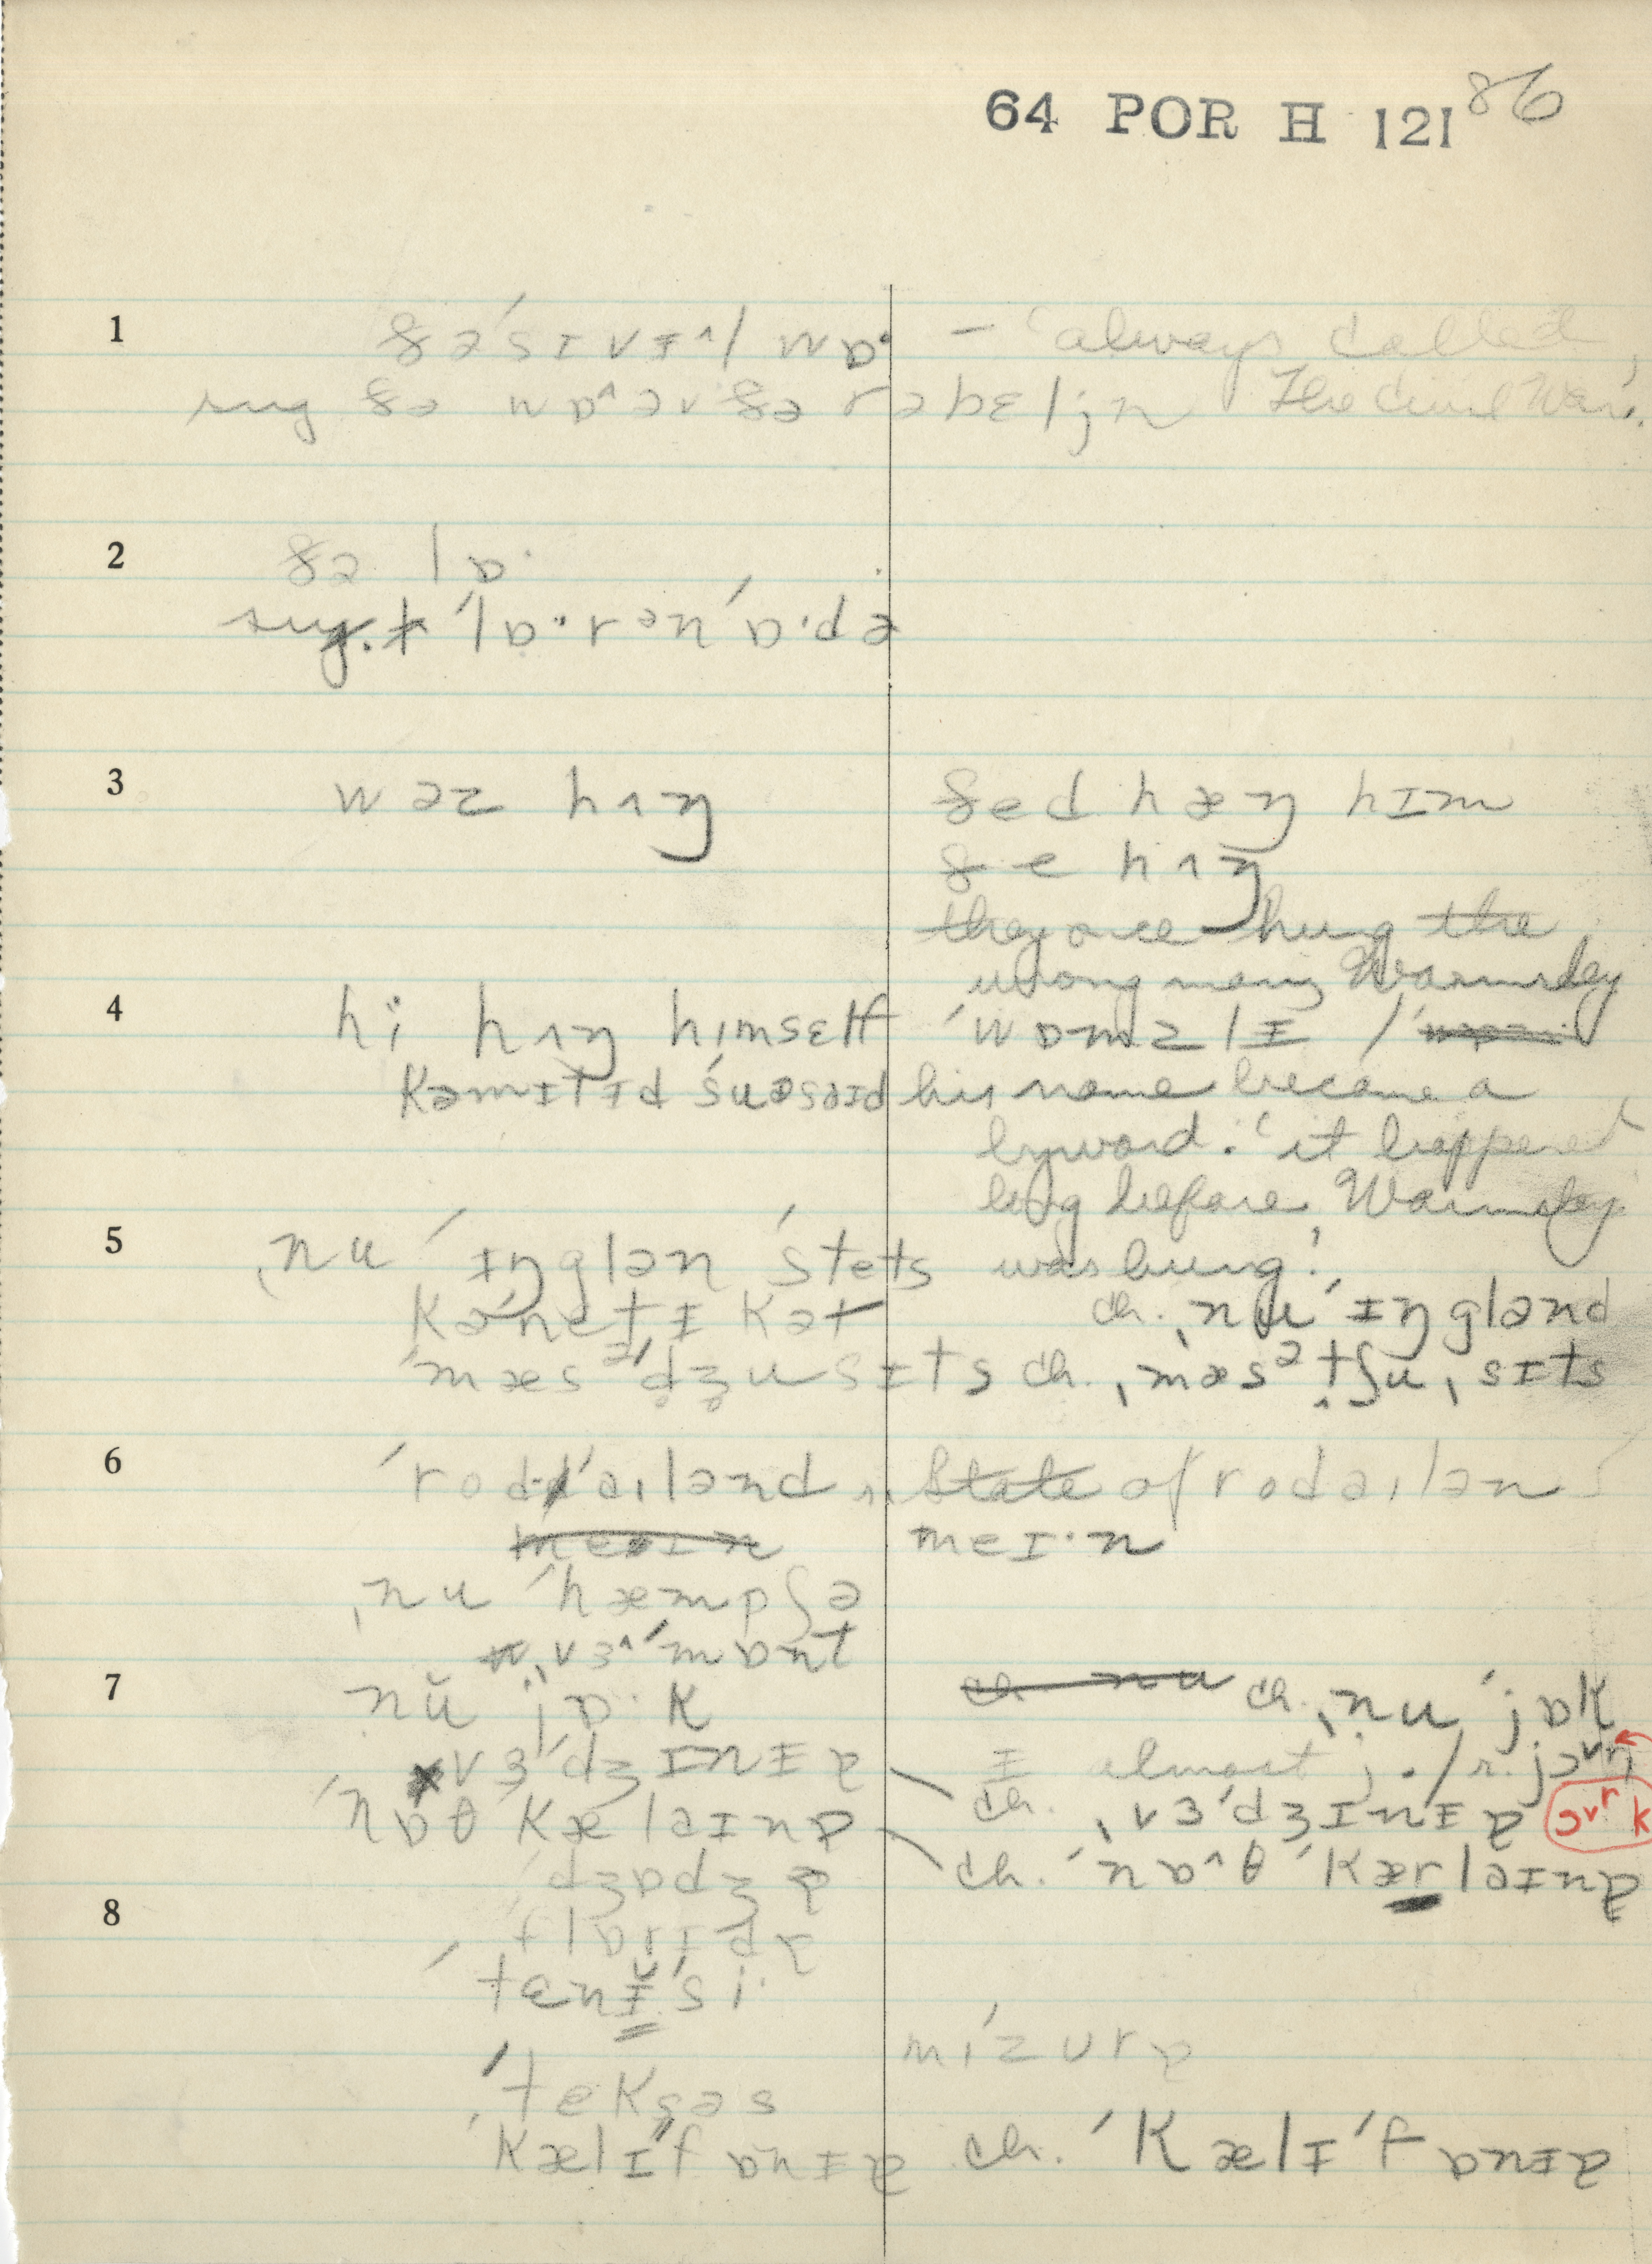 64 POR H 121 86
1 ðə sɪvɪ^l wɒ· — 'always called
sug ðə wɒ^əv ðə rəbɛljn The Civil War'.
2 ðə lɒ·
sug. t 'lɒ·rən'ɒ·də
3 wəz hʌŋ ðed hæŋ him
ðe hʌŋ
they once hung the
wrong man, Warmsley
4 hi hʌŋ himsɛlf 'wɒmzlɪ /
Kəmɪtɪd suəsaɪd his name became a
byword. 'it happened
long before Warmsley
5 ˌnu 'ɪŋglən 'stets was hung.'
Kənɛtɪkət ch. ˌnu 'ɪŋglənd
'mæsə'dʒusɪts ch. ˌmæsəˌtʃuˌsɪts
6 'rod'aɪlənd State of rodaɪlən
meɪn meɪ·n
ˌnu 'hæmpʃə
ˌvɜ^'mɒnt
7 nŭ jɒ·k ch nu ch. ˌnu 'jɒk
vɜ'dʒɪnɪɐ I almost
ch. ˌvɜ'dʒɪnɪɐ
'nɒθ kæləɪnɐ ch. 'nɒ^θ 'Kærləɪnɐ
dʒɒdʒɐ
8 flɒrɪdɐ
'tɛnɪ̆'si·
mízʊrɐ
'tɛksəs
kælɪ'fɒnɪɐ ch. 'Kælɪ'fɒnɪɐ